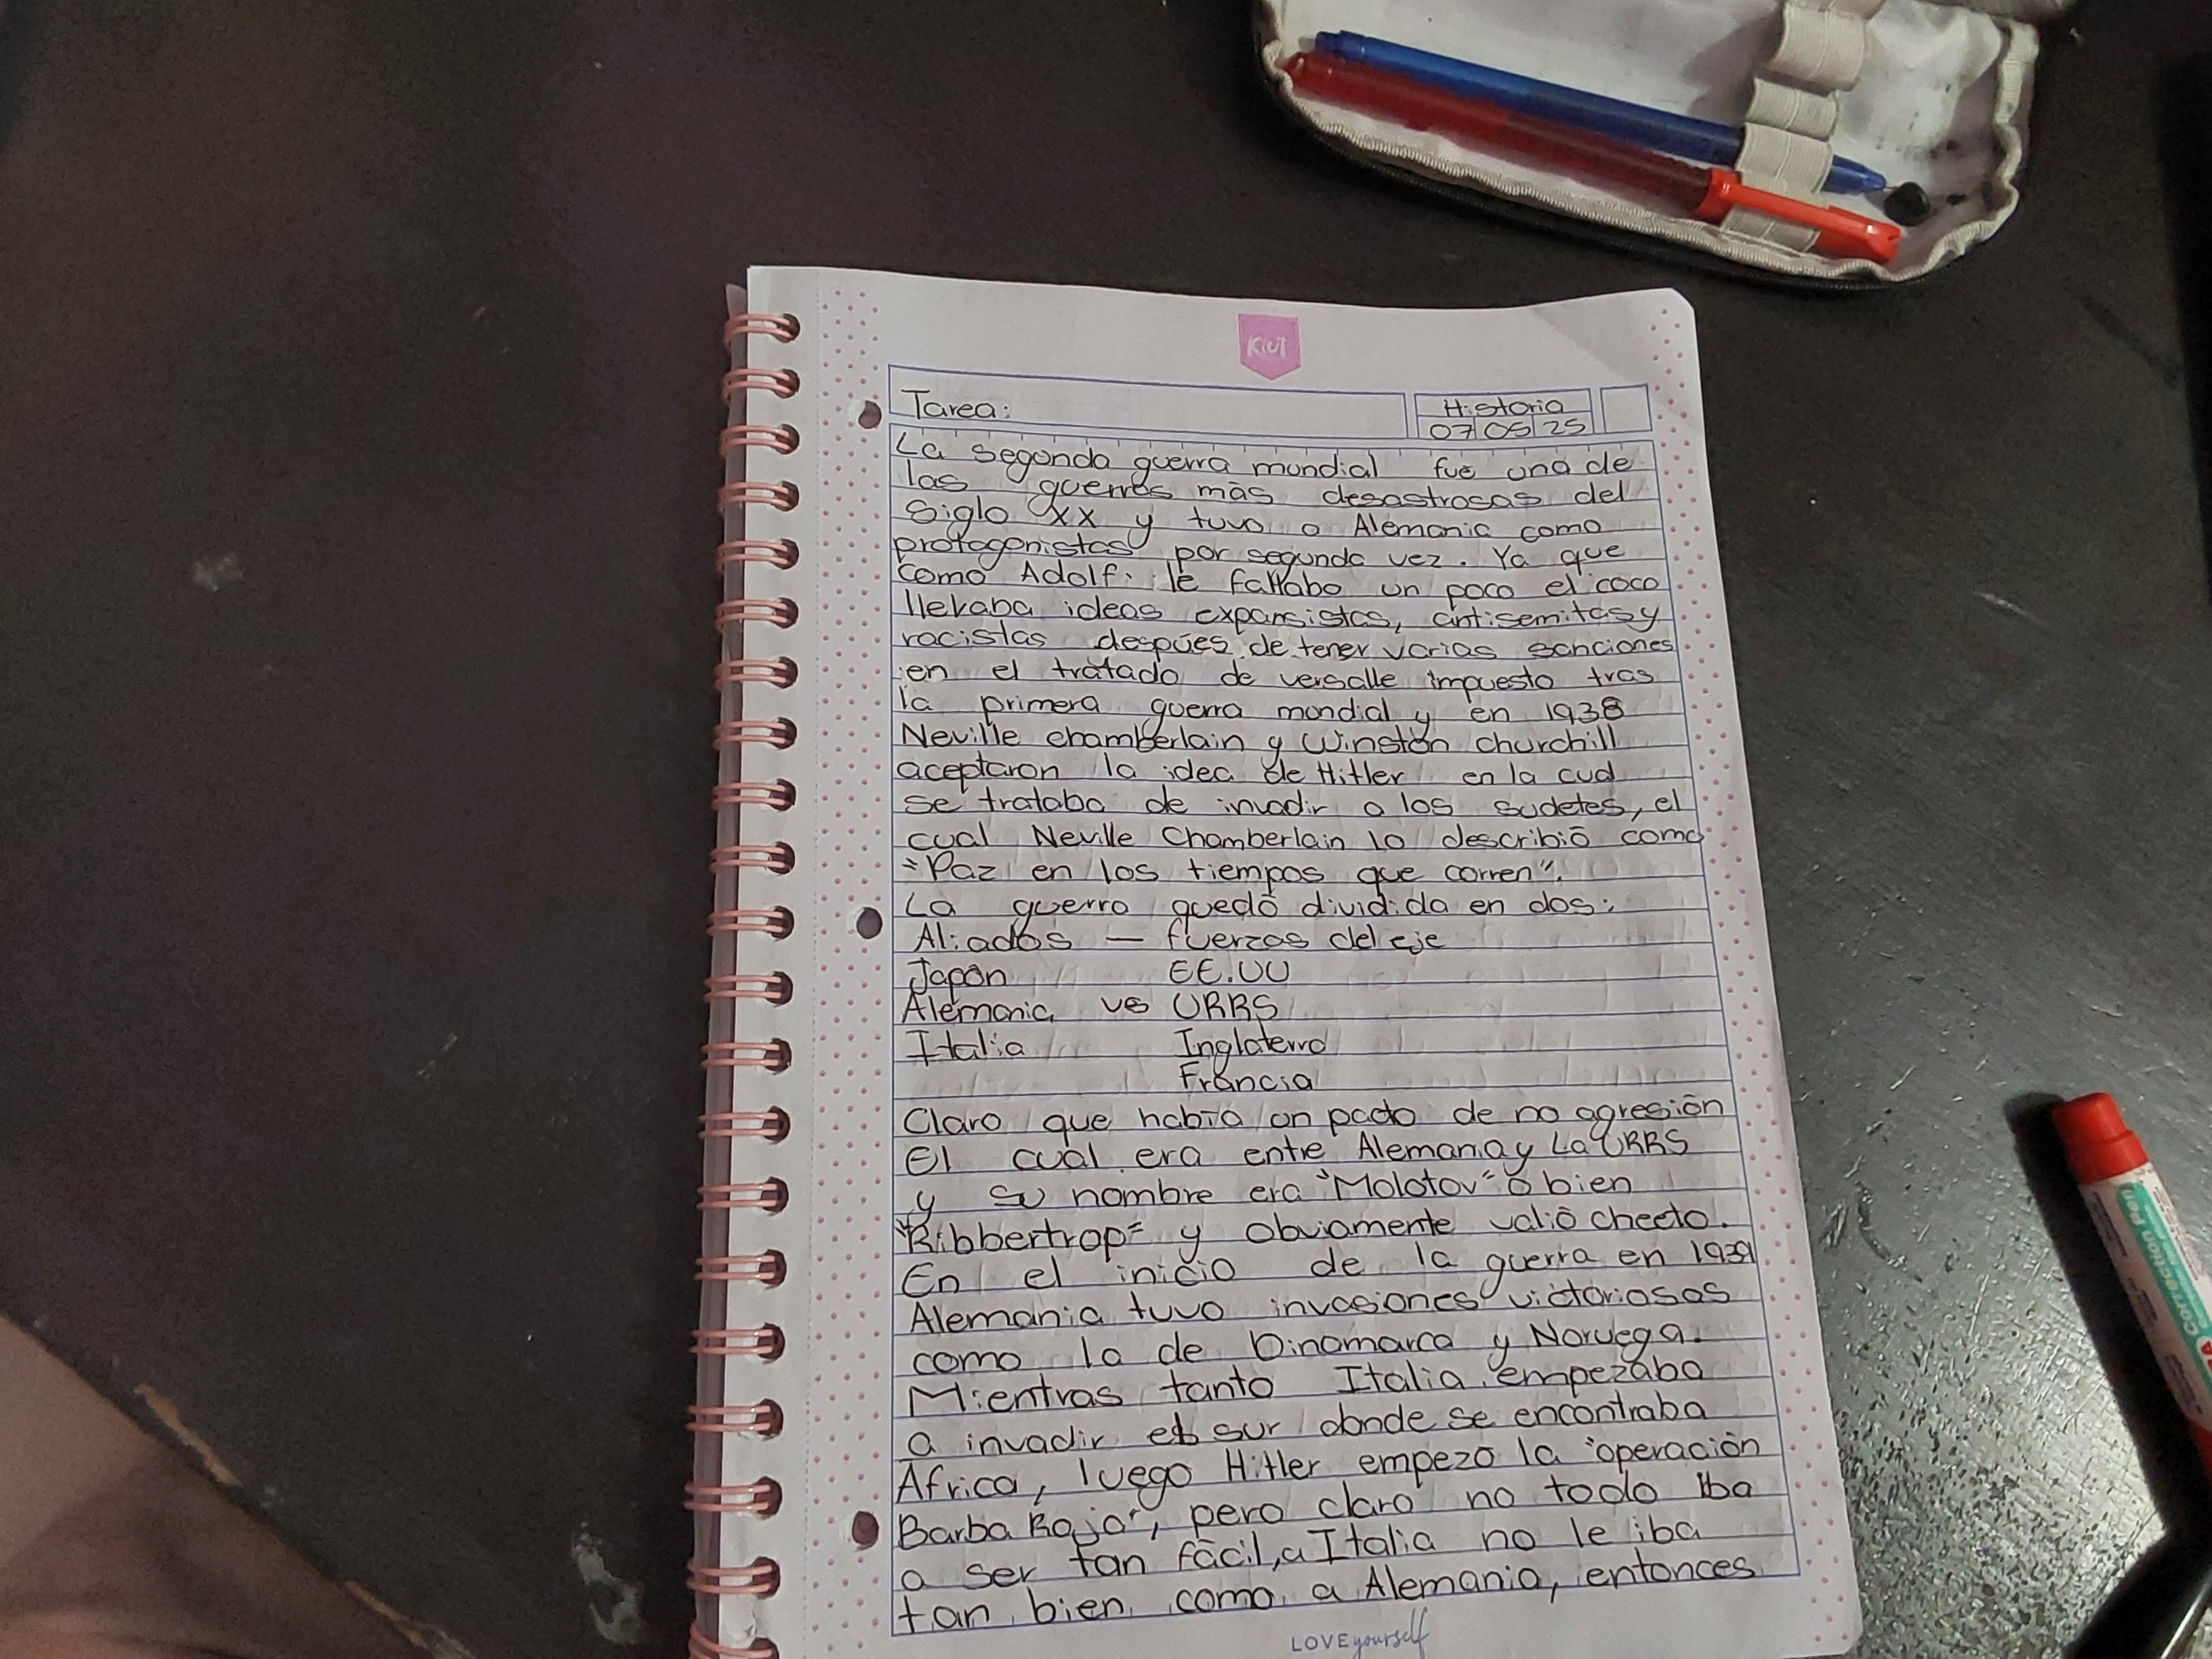 KIUT
Tarea:
Historia
07 05 25
La segonda guerra mundial fue una de
las guerras más desastrosas del
Siglo XX y tuvo a Alemania como
protagonistas por segunda vez. Ya que
como Adolf le faltaba un poco el coco
llevaba ideas expansistas, antisemitas y
racistas despúes de tener varias sanciones
en el tratado de versalle impuesto tras
la primera guerra mondial y en 1938
Neville chamberlain y Winston churchill
aceptaron la idea de Hitler en la cual
se trataba de invadir a los sudetes, el
cual Neville Chamberlain lo describió como
"Paz en los tiempos que corren".
La guerra quedó dividida en dos:
Aliados — fuerzas del eje
Japón EE.UU
Alemania vs URRS
Italia Inglaterra
Francia
Claro que había un pacto de no agresión
El cual era entre Alemania y La URRS
y su nombre era "Molotov" o bien
"Ribbertrop" y Obviamente valió cheeto.
En el inicio de la guerra en 1939
Alemania tuvo invasiones victoriosas
como la de Dinamarca y Noruega.
Mientras tanto Italia empezaba
a invadir el sur donde se encontraba
África, luego Hitler empezó la "operación
Barba Roja", pero claro no todo iba
a ser tan fácil, a Italia no le iba
tan bien como a Alemania, entonces
LOVE yourself
Correction Pen